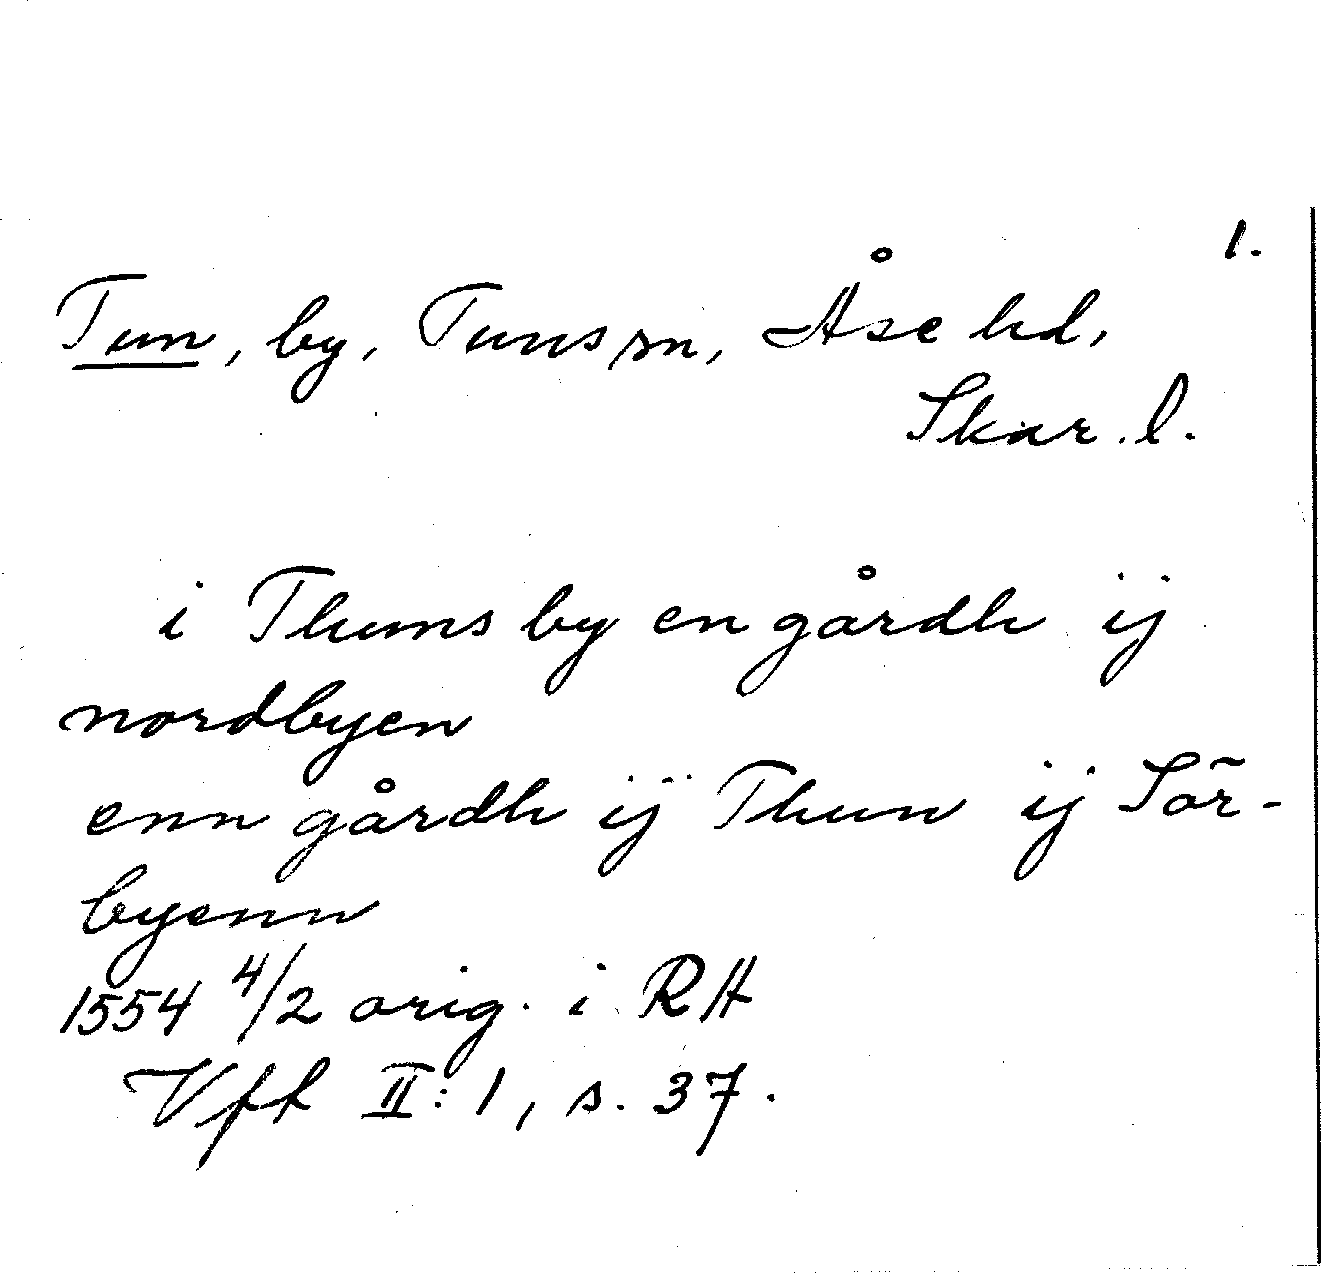 1.
Tun, by, Tuns sn, Åse hd,
Skar. l.
i Thuns by en gårdh ij
nordbyen
enn gårdh ij Thun ij Sör-
byenn
1554 4/2 orig. i RA
Vfh II:1, s. 37.